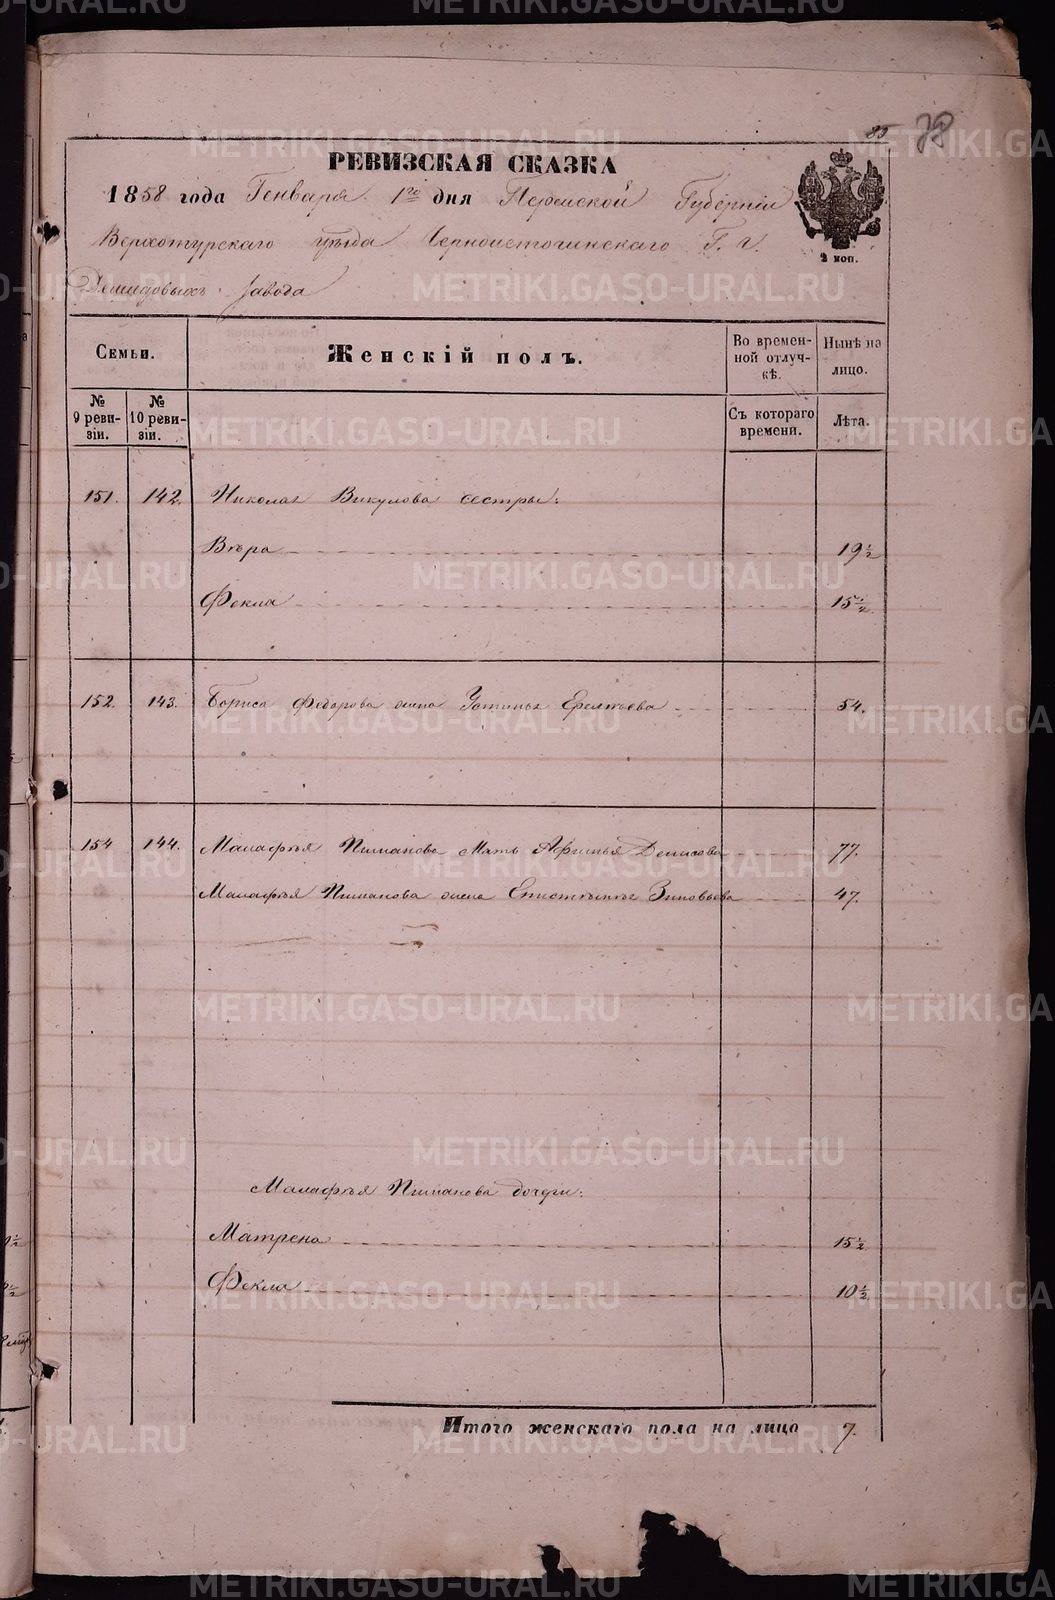 85 78
РЕВИЗСКАЯ СКАЗКА
1858 года Генваря 1го дня Пермской Губерніи
Верхотурскаго уезда Черноисточинскаго Г. г.
Демидовыхъ завода
2 коп.
Семьи.
Женскій полъ.
Во времен-
ной отлуч-
кѣ.
Нынѣ на
лицо.
№
9 реви-
зіи.
№
10 реви-
зіи.
Съ котораго
времени.
Лѣта.
151. 142. Николая Викулова сестры:
Вѣра 19 1/2
Фекла 15 1/2
152. 143. Бориса Федорова жена Устинья 54.
154 144. Малафѣя Пиманова мать Афимья Денисова 77.
Малафѣя Пиманова жена Зиновьева 47.
Малафѣя Пиманова дочери:
Матрена 15 1/2
Фекла 10 1/2
Итого женскаго пола на лицо 7.
METRIKI.GASO-URAL.RU